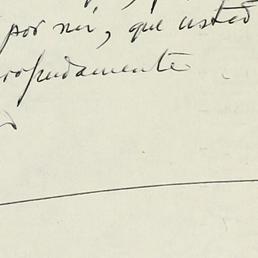 por mí, que usted
rofundamente